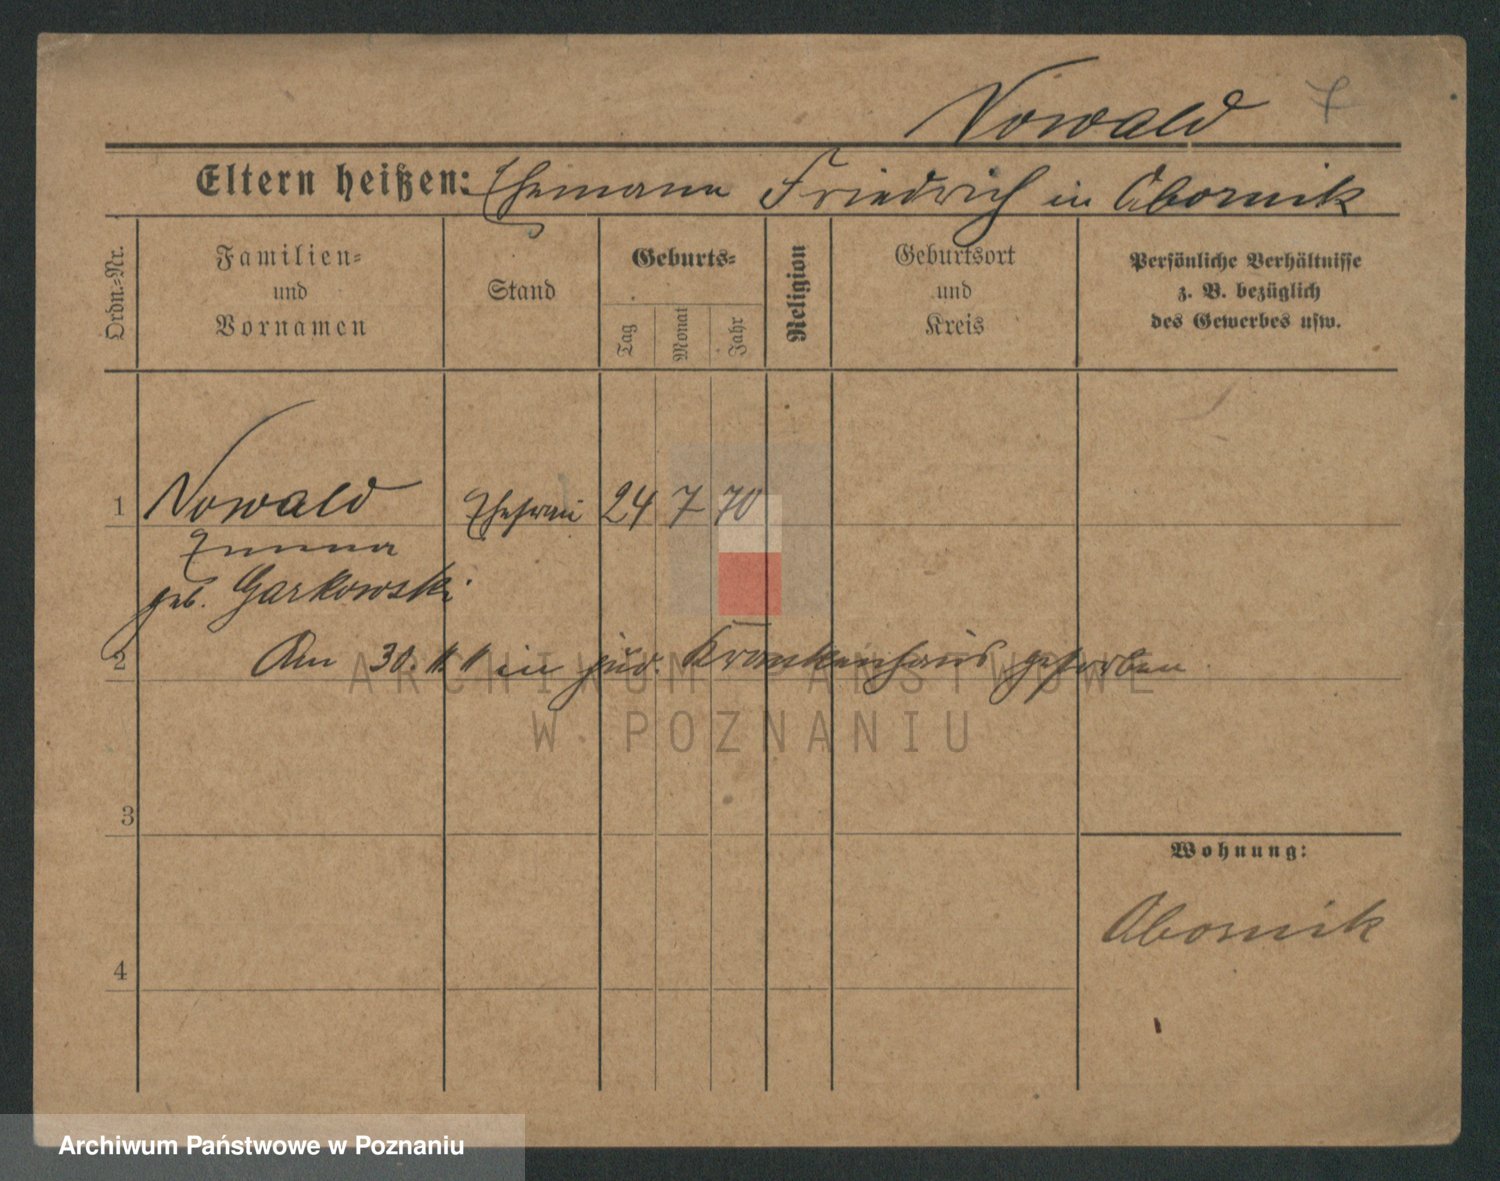 Nowald 7
Eltern heißen: Ehemann Friedrich in Obornik
Ordn.-Nr.
Familien-
und
Vornamen
Stand
Geburts-
Tag
Monat
Jahr
Religion
Geburtsort
und
Kreis
Persönliche Verhältnisse
z. B. bezüglich
des Gewerbes usw.
1 Nowald Ehefrau 24 7 70
Emma
geb. Garkowski
2 Am 30. 11. 11 in jüd. Krankenhaus gestorben
ARCHIWUM PAŃSTWOWE
W POZNANIU
3
Wohnung:
Obornik
4
Archiwum Państwowe w Poznaniu